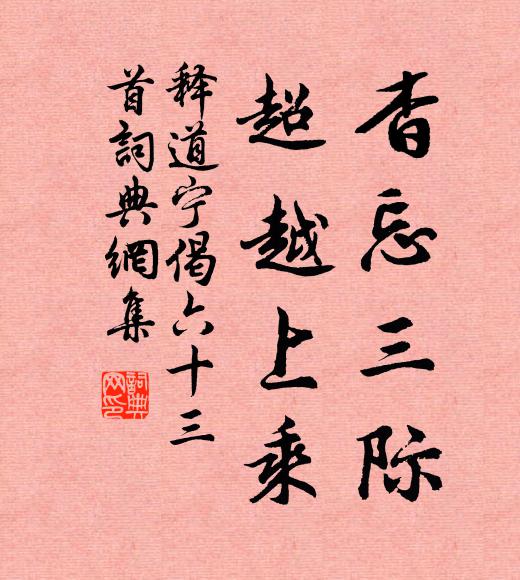 杳忘三际
超越上乘
释道宁偈六十三
首詞典網集
詞典网印